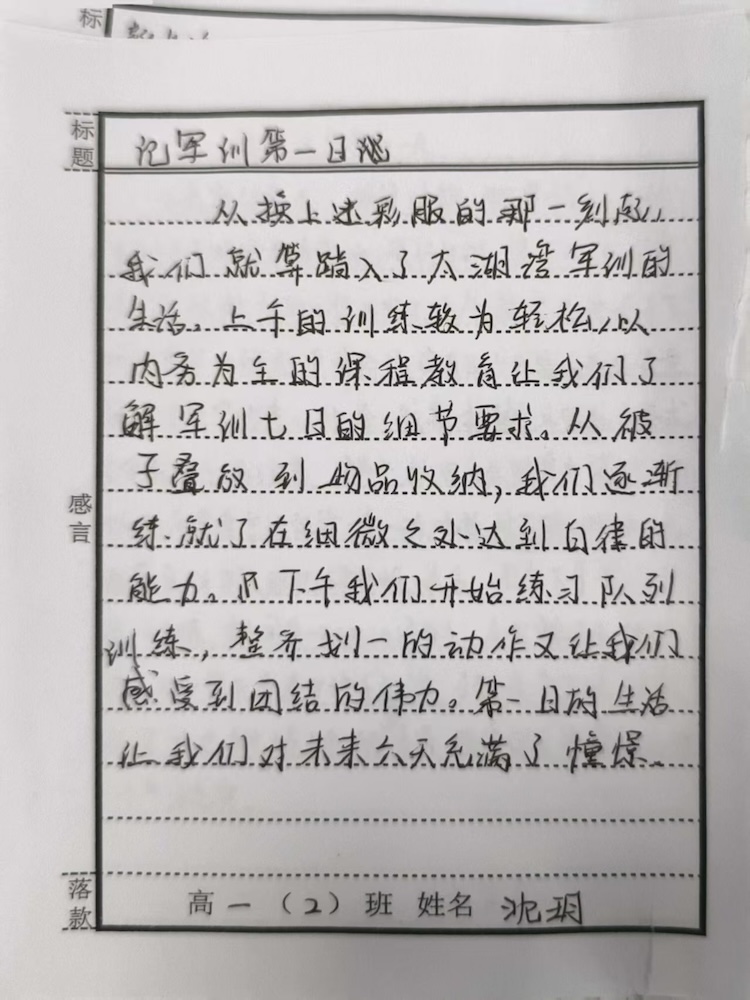 标
标题
记军训第一日感
从换上迷彩服的那一刻起,
我们就算踏入了太湖湾军训的
生活。上午的训练较为轻松,以
内务为主的课程教育让我们了
解军训七日的细节要求。从被
子叠放到物品收纳,我们逐渐
练就了在细微之处达到自律的
能力。下午我们开始练习队列
训练,整齐划一的动作又让我们
感受到团结的伟力。第一日的生活
让我们对未来六天充满了憧憬。
感言
落款
高一(2)班 姓名 沈玥